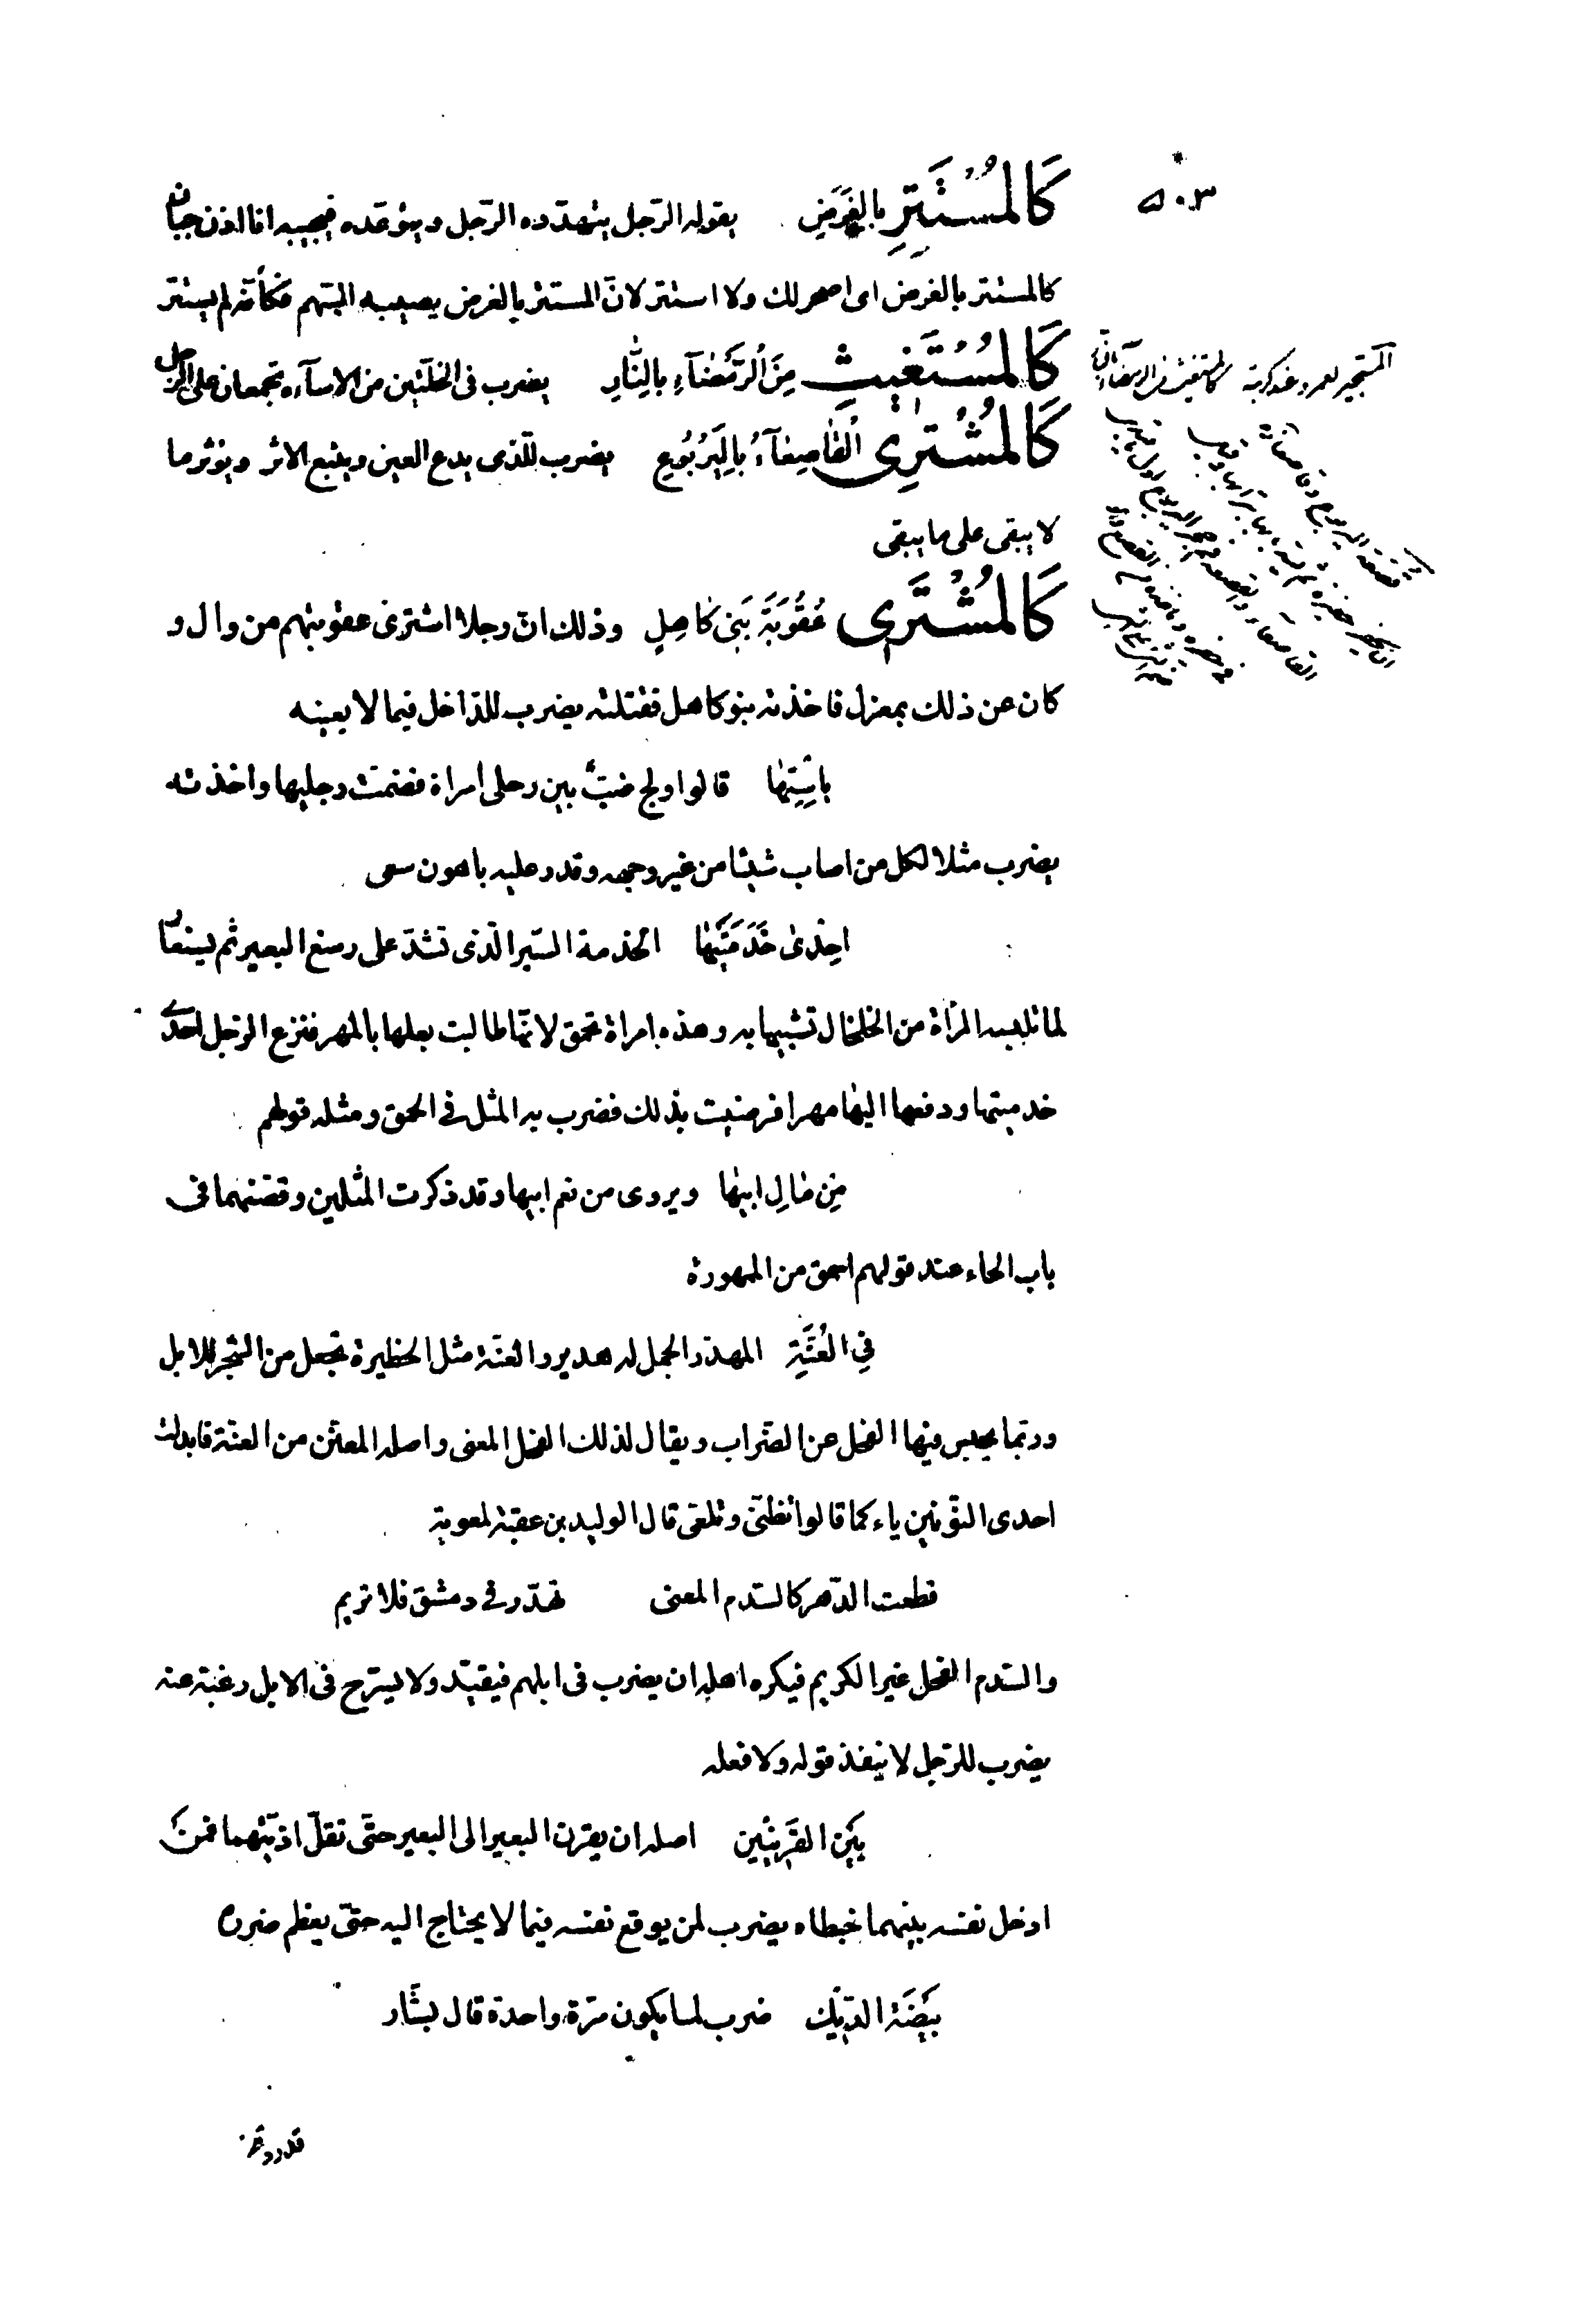 ٥٠٣
كَالمُسْتَتِرِ بِالغَرَضِ يقوله الرّجل يتهدّده الرّجل ويتوعّده فيجيبه انا اذن جبان
كالمستتر بالغرض اى اصحر لك ولا استتر لانّ المستتر بالغرض يصيبه السّهم فكأنّه لم يستتر
كَالمُسْتَغيثِ مِنَ الرَّمْضَآءِ بِالنّارِ يضرب فى الخلّتين من الاسآءة تجمعان على الرّجل
المستجير بعمرو عند كربته كالمستغيث من الرمضاء بالنار
كَالمُشْتَرِى القَاصِعَآءَ بِاليَرْبُوعِ يضرب للّذى يدع العين ويتبع الاثر ويؤثر ما
لا يبقى على ما يبقى
كَالمُشْتَرِى عُقُوبَةَ بَنِى كَاهِلٍ وذلك انّ رجلا اشترى عقوبتهم من وال و
كان عن ذلك بمعزل فاخذته بنو كاهل فقتلته يضرب للدّاخل فيما لا يعينه
بِاسْتِهَا قالوا ولج ضبّ بين رجلى امراة فضمّت رجليها واخذته
يضرب مثلا لكل من اصاب شيئا من غير وجهه وقدر عليه باهون سعى
احِدَىٰ خَدَمَتَيْهَا الخدمة السّير الّذى تشدّ على رسغ البعير ثم يستعار
لما تلبسه المرأة من الخلخال تشبيها به وهذه امراة تحمق لانّها طالبت بعلها بالمهر فنزع الرجل احدى
خدمتيها ودفعها اليها مهرا فرضيت بذلك فضرب به المثل فى الحمق ومثله قولهم
مِن مَالِ ابيهَا ويروى من نعم ابيها وقد ذكرت المثلين وقصّتهما فى
باب الحاء عند قولهم احمق من الممهورة
فِى العُنَّةِ المهدّر الجمل له هدير والعنّة مثل الحظيرة تجعل من الشجر للابل
وربّما يحبس فيها الفحل عن الضّراب ويقال لذلك الفحل المعنى واصله المعنّن من العنّة فابدلت
احدى النّونين ياء كما قالوا تظنّى وتلعّى قال الوليد بن عقبة لمعوية
قطعت الدّهر كالسّدم المعنى تهدّر فى دمشق فلا تريم
والسّدم الفحل غير الكريم فيكره اهله ان يضرب فى ابلهم فيقيّد ولا يسرّح فى الابل رغبة عنه
يضرب للرّجل لا ينفذ قوله ولا فعله
بَيْنَ القَرِينَيْن اصله ان يقرن البعير الى البعير حتّى تقلّ اذيّتهما فمن
ادخل نفسه بينهما خبطاه يضرب لمن يوقع نفسه فيما لا يحتاج اليه حتّى يعظم ضرره
بَيْضَة الدّيكِ ضرب لما يكون مرّة واحدة قال بشّار
قد زرتنا